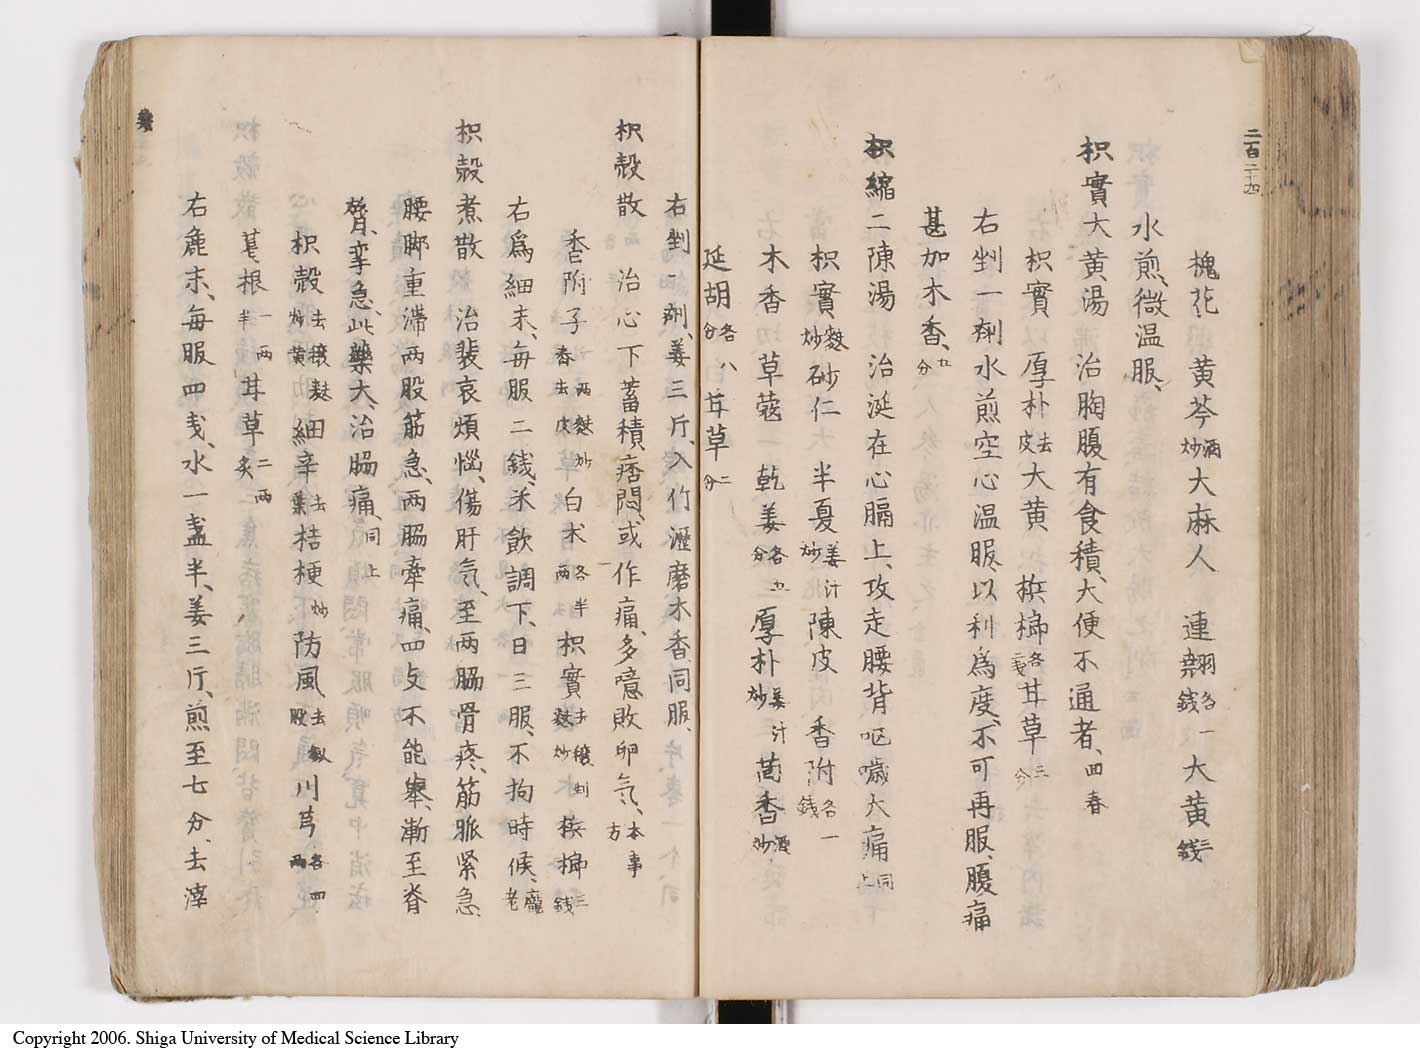 二百二十四
槐花 黄芩酒炒大麻人 連翹各一錢大黄三錢
水煎、微温服、
枳實大黄湯 治胸腹有食積、大便不通者、四春
枳實 厚朴去皮大黄 梹榔各二戔甘草三分
右剉一劑水煎空心温服、以利爲度、不可再服、腹痛
甚加木香、五分
枳縮二陳湯 治涎在心膈上、攻走腰背呕噦大痛同上
枳實麩炒砂仁 半夏姜汁炒陳皮 香附各一錢
木香草蔻 乾姜各五分厚朴姜汁炒茴香酒炒
延胡各八分甘草二分
右剉一劑、姜三斤、入竹瀝磨木香、同服、
枳殼散 治心下蓄積、痞悶、或作痛、多噫敗卵气、本事方
香附子一两麩炒舂去皮白术各半两枳實去穰剉麩炒梹榔三錢
右爲細末、毎服二錢、米飲調下、日三服、不拘時候、龐老
枳殼煮散 治裴哀煩惱、傷肝气、至两脇骨疼、筋脈紧急、
腰脚重滞两股筋急、两脇牽痛、四攴不能擧、漸至脊
膂、挛急、此藥大、治脇痛、同上
枳殼去穰麩炒黄細辛去葉桔梗炒防風去釵股川芎各四两
葛根一两半甘草二两炙
右麁末、毎服四戔、水一盞半、姜三斤、煎至七分、去滓
Copyright 2006. Shiga University of Medical Science Library